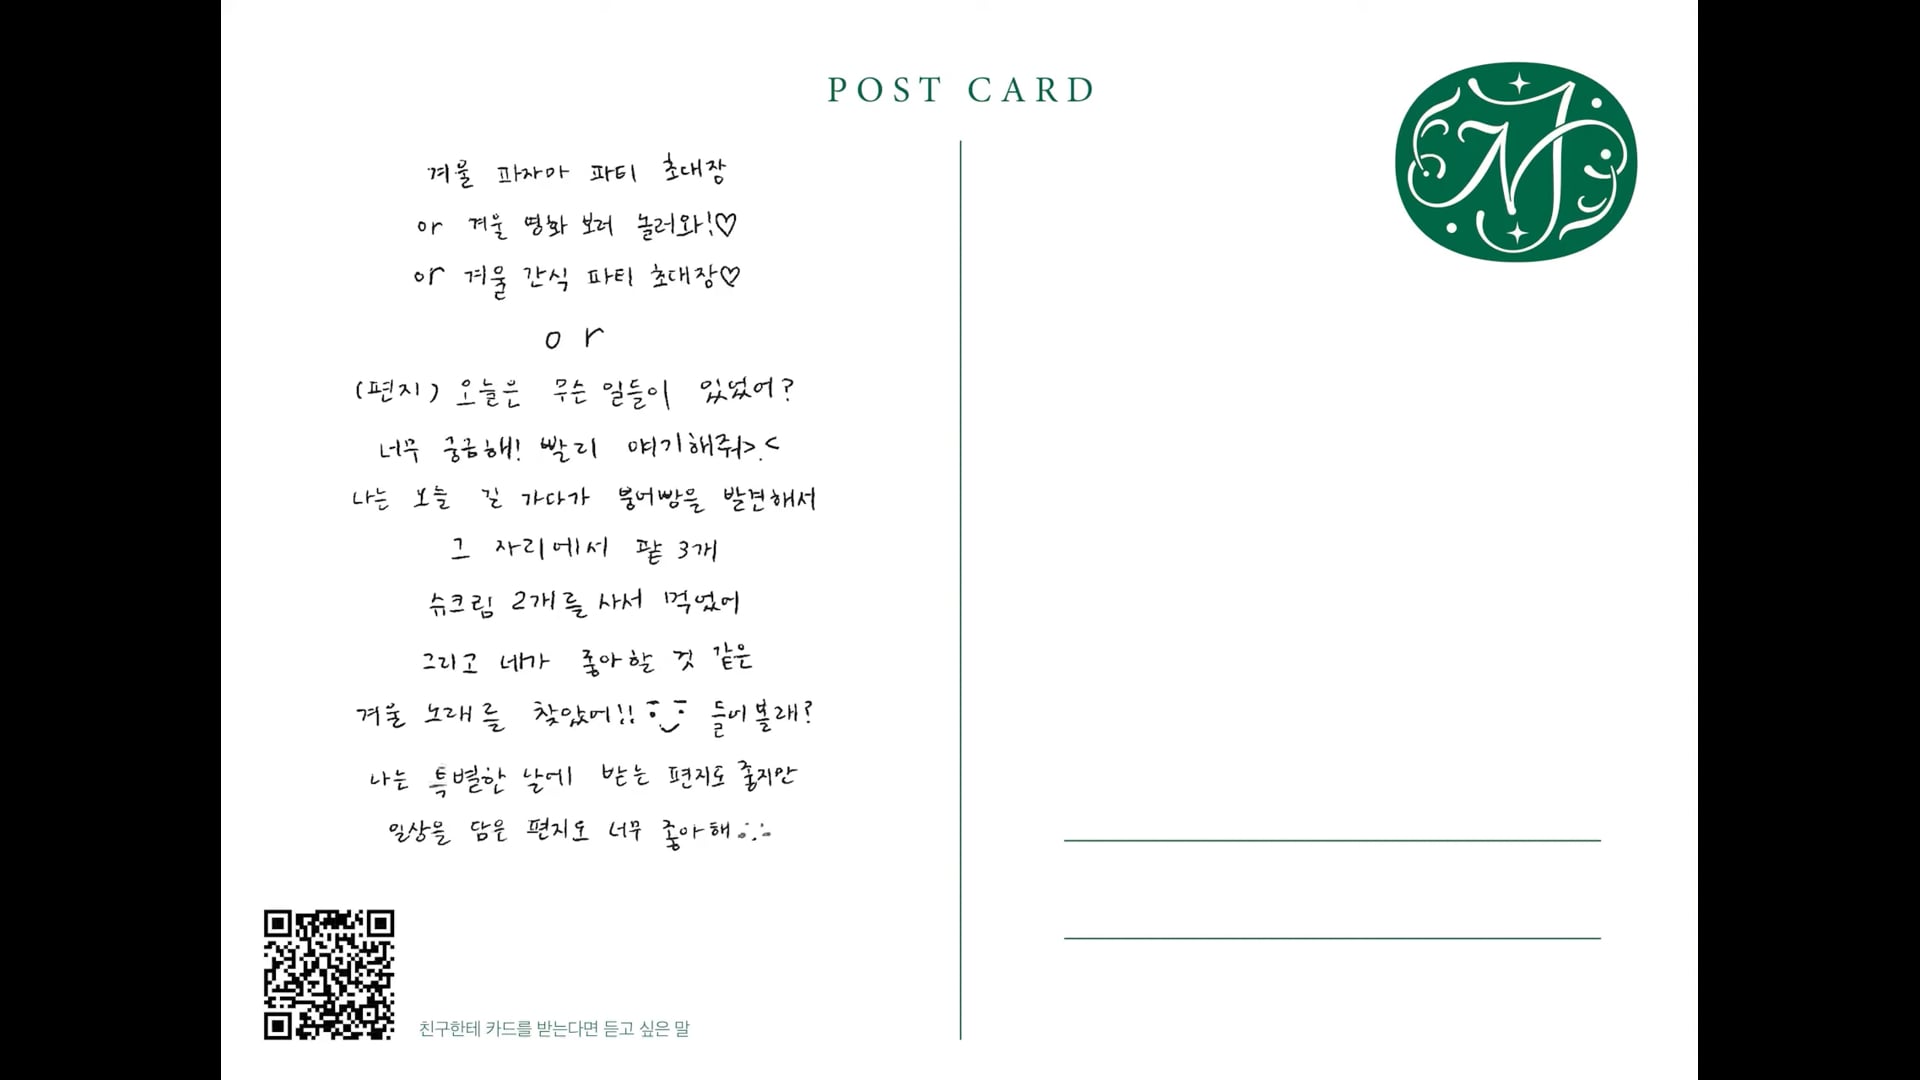 POST CARD
겨울 파자마 파티 초대장
or 겨울 영화 보러 놀러와!♡
or 겨울 간식 파티 초대장♡
or
(편지) 오늘은 무슨 일들이 있었어?
너무 궁금해! 빨리 얘기해줘>.<
나는 오늘 길 가다가 붕어빵을 발견해서
그 자리에서 팥 3개
슈크림 2개를 사서 먹었어
그리고 네가 좋아할 것 같은
겨울 노래를 찾았어!! 들어볼래?
나는 특별한 날에 받는 편지도 좋지만
일상을 담은 편지도 너무 좋아해
친구한테 카드를 받는다면 듣고 싶은 말